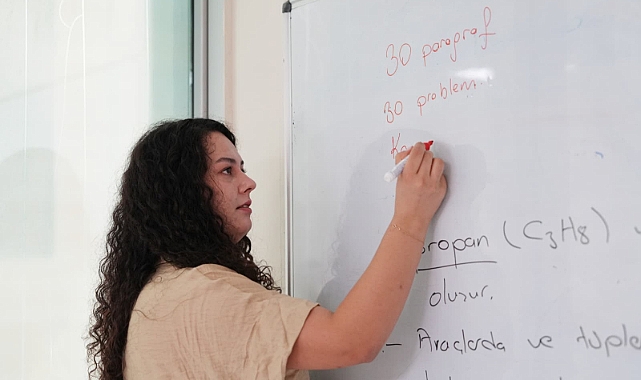 30 paragraf
30 problem...
propan (C3H8)
oluşur.
- Araçlarda ve tüple